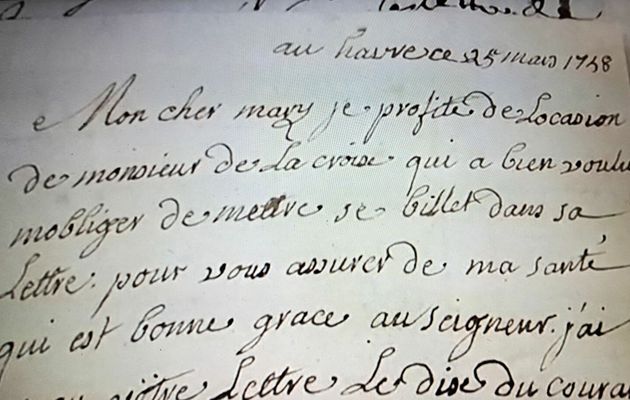 au havre ce 25 mars 1758
Mon cher mary je profite de Locasion
de monsieur de La croix qui a bien voulu
mobliger de mettre se billet dans sa
Lettre. pour vous assurer de ma santé
qui est bonne grace au seigneur. j'ai
vôtre Lettre Le dixe du couran